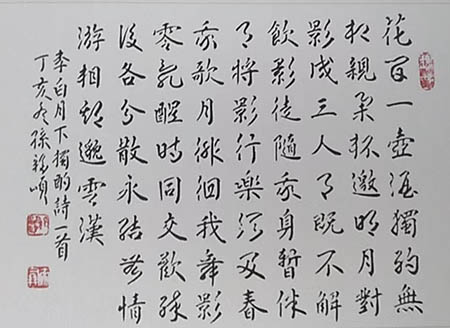 花間一壺酒獨酌無
相親举杯邀明月對
影成三人月既不解
飲影徒隨我身暫伴
月將影行樂須及春
我歌月徘徊我舞影
零乱醒時同交歡醉
後各分散永結無情
游相期邈雲漢
李白月下獨酌詩一首
丁亥冬孫